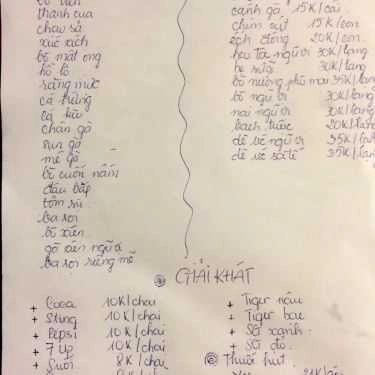 thanh cua
chau sả
xúc xích
bò mật ong
hồ lô
răng mực
cá trứng
cá
chân gà
sụn gà
mề gà
bò cuốn nấm
đậu bắp
tôm sú
ba rọi
bò xiên
gà xiên ngũ vị
ba rọi riềng mẻ
cánh gà 15K/cái
chim cút 15K/con
ếch đồng 20K/con
heo tá ngũ vị 30K/lạng
bò satế 30K/lạng
bò nướng phô mai 35K/lạng
bò ngũ vị 30K/lạng
nai ngũ vị 30K/lạng
bạch tuộc 20K/lạng
dê vé ngũ vị 35K/lạng
dê vé satế 35K/lạng
GIẢI KHÁT
+ Coca 10K/chai
+ Sting 10K/chai
+ Pepsi 10K/chai
+ 7 Up 10K/chai
+ Suối 8K/chai
+ Tiger nâu
+ Tiger bạc
+ SG xanh
+ SG đỏ
Thuốc hút